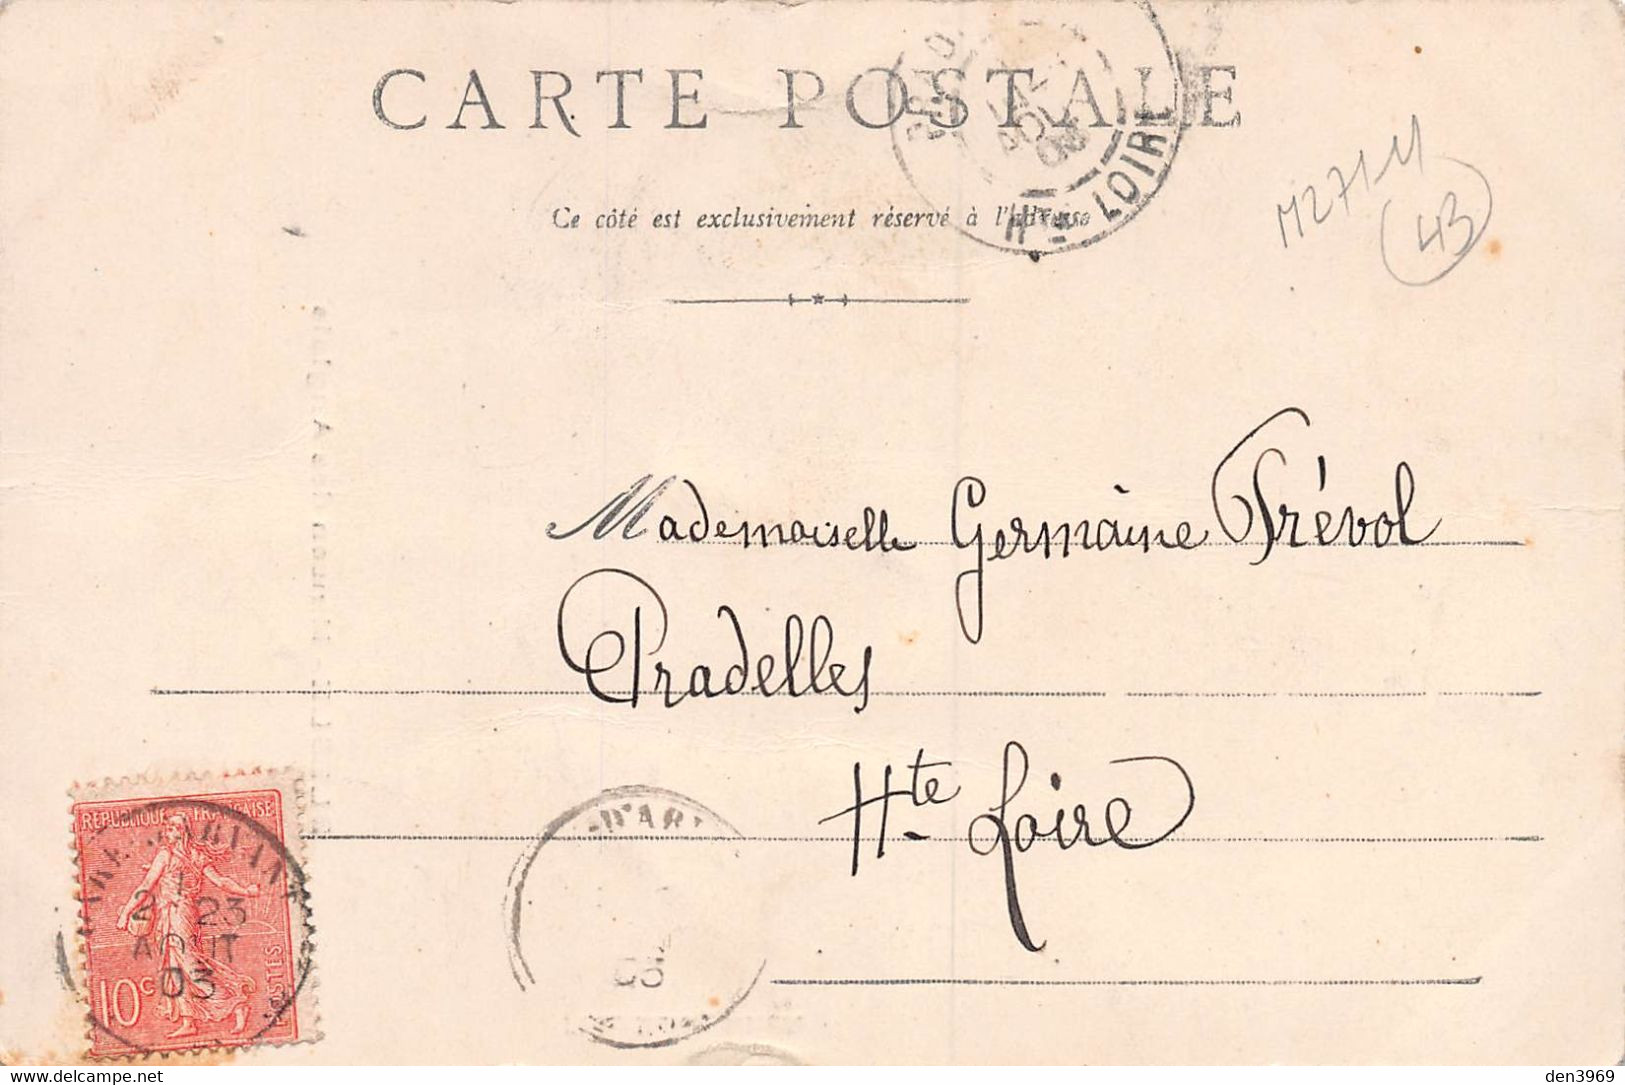 CARTE POSTALE
Ce côté est exclusivement réservé à l'Adresse
Hte LOIRE
M2714
43
Mademoiselle Germaine Trévol
Pradelles
Hte Loire
REPUBLIQUE FRANÇAISE
2 23
AOUT
03
10c POSTES
D'AR
03
den3969